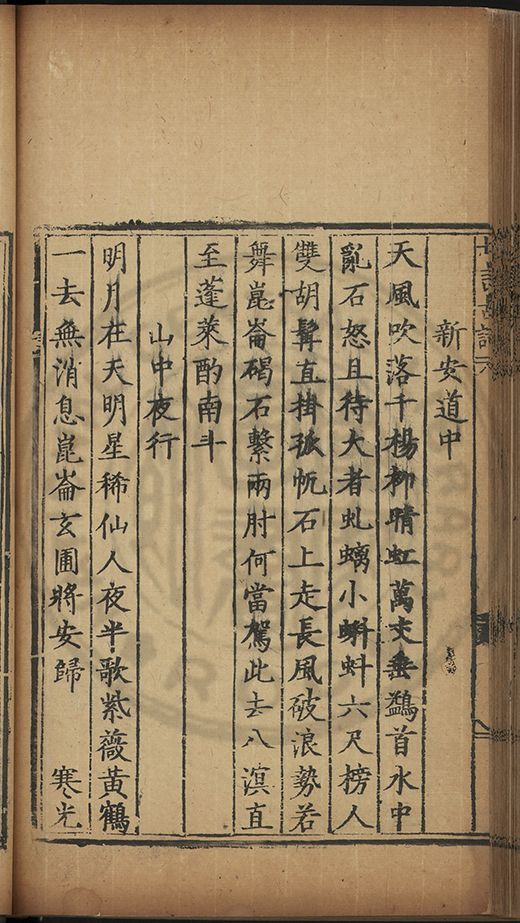 新安道中
天風吹落千楊柳晴虹萬丈垂鷁首水中
亂石怒且待大者虬螭小蝌蚪六尺榜人
雙胡髯直掛孤帆石上走長風破浪勢若
舞崑崙碣石繫兩肘何當駕此去八溟直
至蓬萊酌南斗
山中夜行
明月在天明星稀仙人夜半歌紫薇黃鶴
一去無消息崑崙玄圃將安歸　寒光